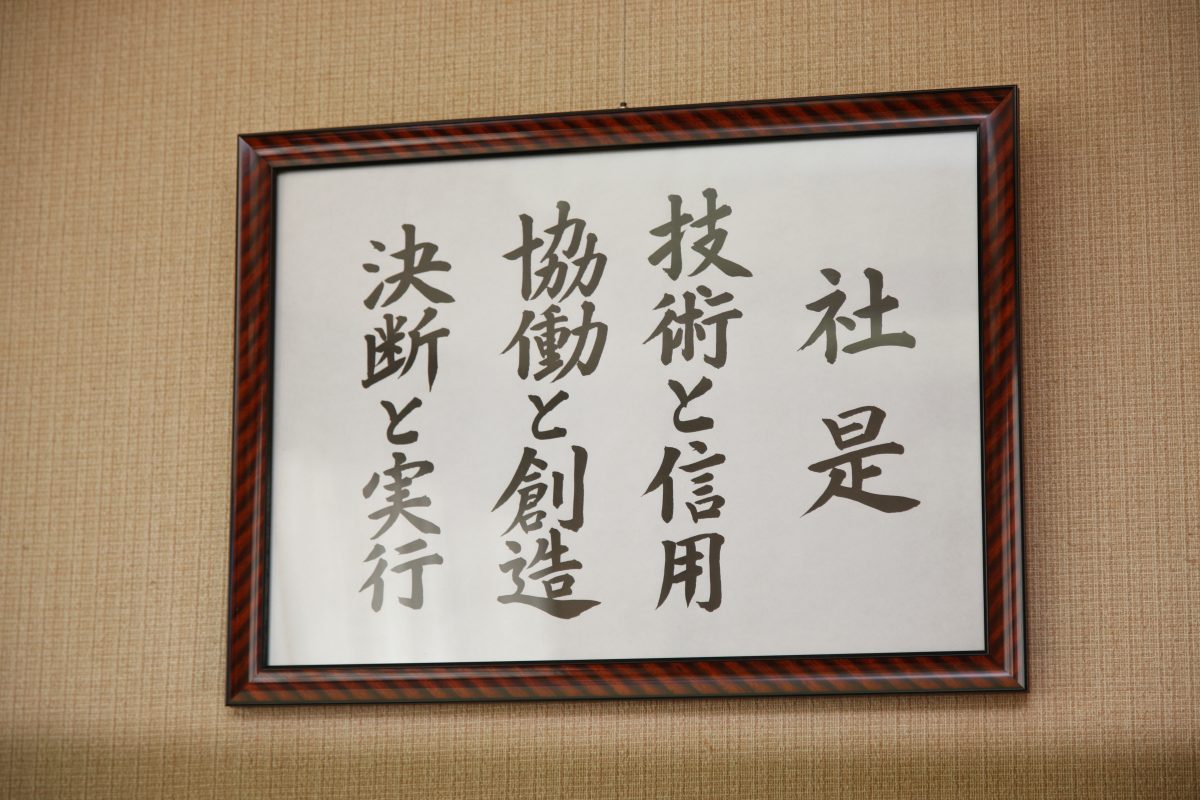 社是
技術と信用
協働と創造
決断と実行